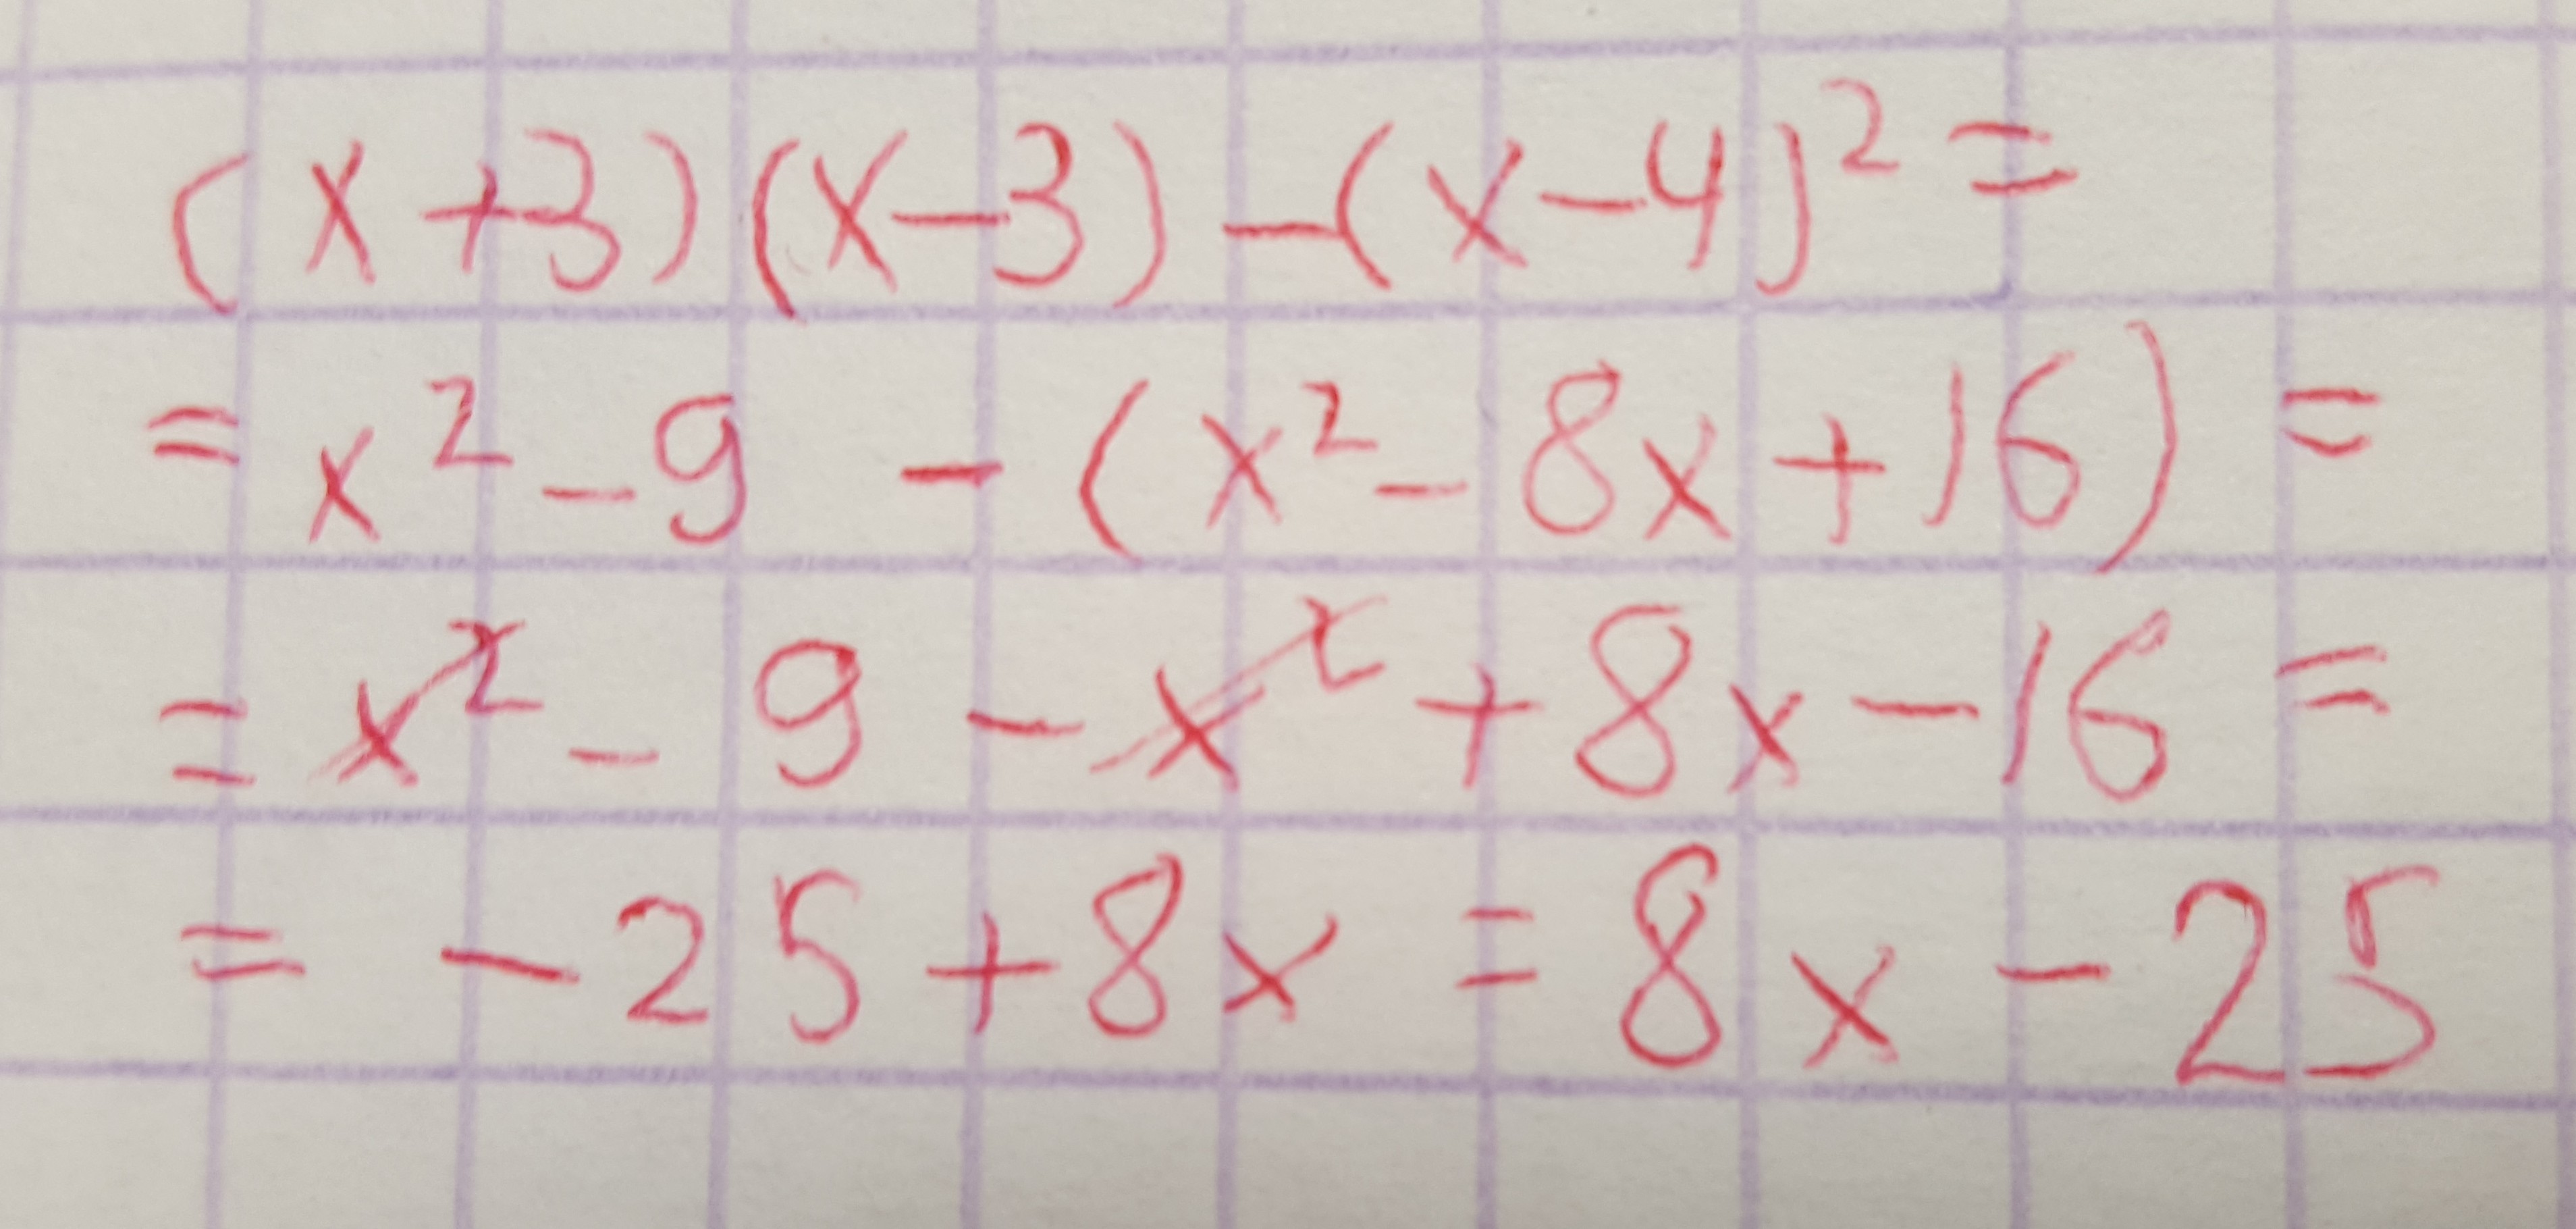 (x+3)(x-3)-(x-4)²=
=x²-9 -(x²-8x+16)=
=x²-9-x²+8x-16=
=-25+8x=8x-25